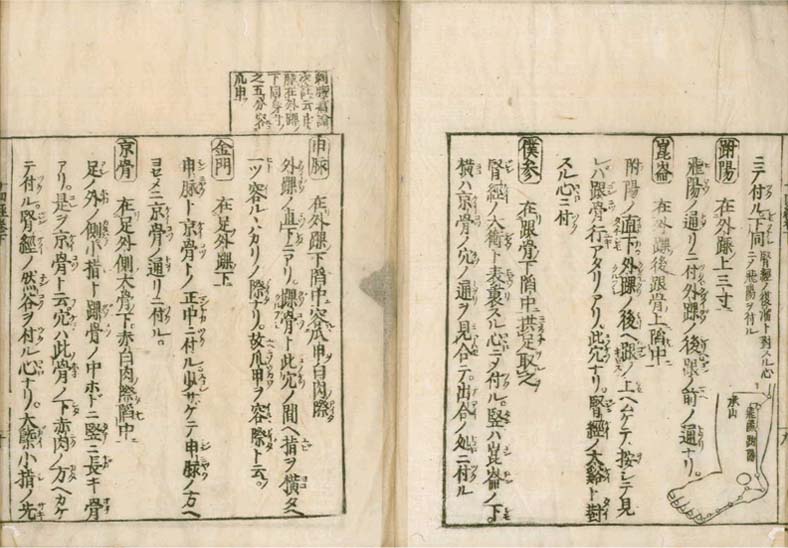 ミテ付ル下同シ
腎經ノ復溜ト対スル心
ニテ飛陽ヲ付ル
跗陽 在外踝上三寸
飛陽ノ通リニ付外踝ノ後跟ノ前ノ通ナリ。
崑崙 在外踝後跟骨上陷中
跗陽ノ直下外踝ノ後ヘ跟ノ上ヘムケテ按シテ見
レバ跟骨ニ行アタリアリ。此穴ナリ。腎經ノ大谿ト對
スル心ニ付
僕参 在跟骨下陷中拱足取之
腎經ノ大衝ト表裏スル心ニテ付ル。竪ハ崑崙ノ下
横ハ京骨ノ穴ノ通ヲ見合テ。出合ノ処ニ付ル
承山
飛陽
跗陽
之五分容
爪甲
申脉 在外踝下陷中容爪甲白肉際
外踝ノ直下ニアリ。踝骨ト此穴ノ間ヘ指ヲ横タヘ
一ツ容ルヽバカリノ際ナリ。故爪甲ヲ容際ト云。
金門 在足外踝下
申脉ト京骨トノ正中ニ付ル少サゲテ申脉ノ方ヘ
ヨセメニ京骨ノ通リニ付ル。
京骨 在足外側大骨下。赤白肉際陷中
足ノ外ノ側小指ト踝骨ノ中ホドニ竪ニ長キ骨
アリ。是ヲ京骨ト云穴ハ此骨ノ下赤肉ノ方ヘカケ
テ付ル。腎經ノ然谷ヲ付ル心ナリ。大槩小指ノ先